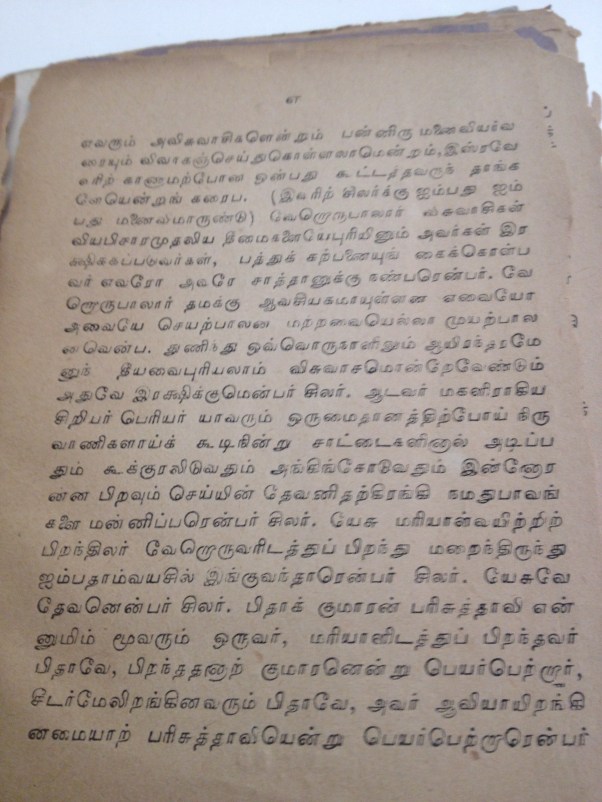 எ
எவரும் அவிசுவாசிகளென்றும் பன்னிரு மனைவியர்வ
ரையும் விவாகஞ்செய்துகொள்ளலாமென்றும், இஸ்ரவே
லரிற் காணாமற்போன ஒன்பது கூட்டத்தவருந் தாங்க
ளேயென்றுங் கரைப. (இவரிற் சிலர்க்கு ஐம்பது ஐம்
பது மனைவிமாருண்டு) வேறொருபாலார் விசுவாசிகள்
வியபிசாரமுதலிய தீமைகளையேபுரியினும் அவர்கள் இர
க்ஷிக்கப்படுவர்கள், பத்துக் கற்பனையுங் கைக்கொள்ப
வர் எவரோ அவரே சாத்தானுக்கு நண்பரென்பர். வே
றொருபாலார் தமக்கு ஆவசியகமாயுள்ளன எவையோ
அவையே செயற்பாலன மற்றவையெல்லா முயற்பால
னவென்ப. துணிந்து ஒவ்வொருநாளிலும் ஆயிரந்தரமே
னுந் தீயவைபுரியலாம் விசுவாசமொன்றேவேண்டும்
அதுவே இரக்ஷிக்குமென்பர் சிலர். ஆடவர் மகளிராகிய
சிறியர் பெரியர் யாவரும் ஒருமைதானத்திற்போய் நிரு
வாணிகளாய்க் கூடிநின்று சாட்டைகளினால் அடிப்ப
தும் கூக்குரலிடுவதும் அங்கிங்கோடுவதும் இன்னோர
ன்ன பிறவும் செய்யின் தேவனிதற்கிரங்கி நமதுபாவங்
களை மன்னிப்பரென்பர் சிலர். யேசு மரியாள்வயிற்றிற்
பிறந்திலர் வேறொருவரிடத்துப் பிறந்து மறைந்திருந்து
ஐம்பதாம்வயசில் இங்குவந்தாரென்பர் சிலர். யேசுவே
தேவனென்பர் சிலர். பிதாக் குமாரன் பரிசுத்தாவி என்
னுமிம் மூவரும் ஒருவர், மரியாளிடத்துப் பிறந்தவர்
பிதாவே, பிறந்ததனாற் குமாரனென்று பெயர்பெற்றார்,
சீடர்மேலிறங்கினவரும் பிதாவே, அவர் ஆவியாயிறங்கி
னமையாற் பரிசுத்தாவியென்று பெயர்பெற்றாரென்பர்